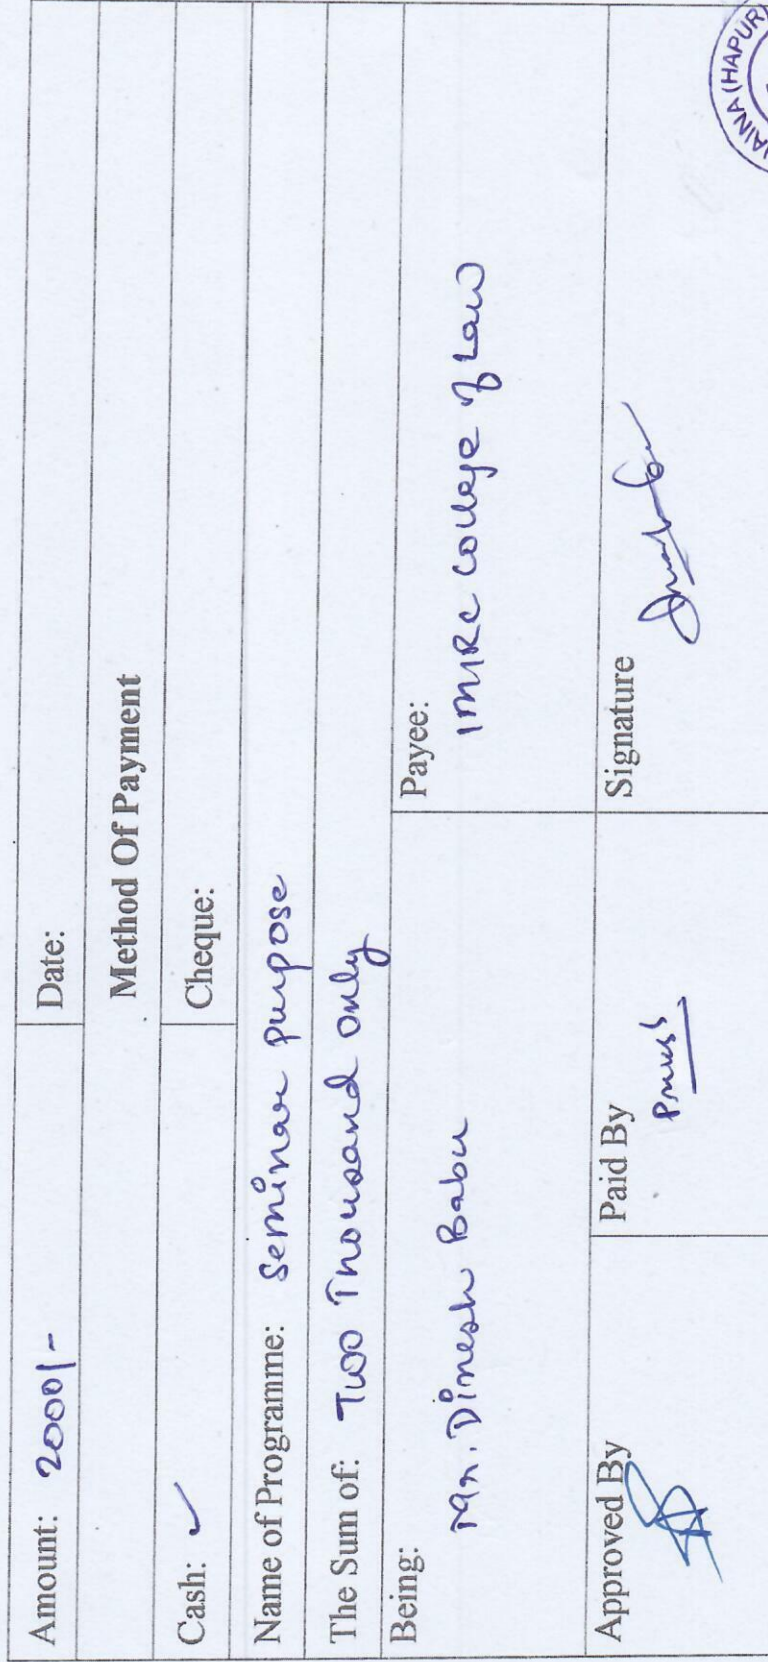 Amount: 2000/- Date:
Method Of Payment
Cash: ✓ Cheque:
Name of Programme: Seminar purpose
The Sum of: Two Thousand only
Being: Payee:
Mr. Dinesh Babu IMIRC College of Law
Approved By Paid By Signature
(HAPUR)